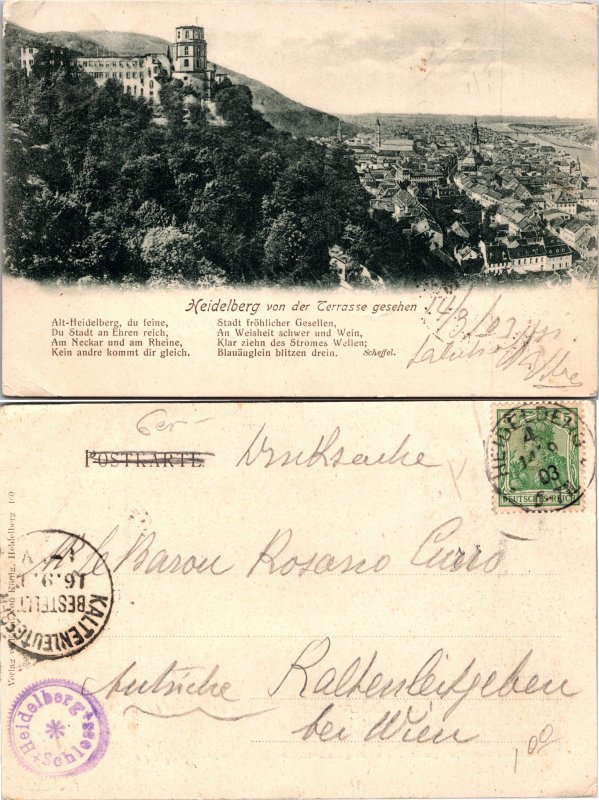 Heidelberg von der Terrasse gesehen
Alt-Heidelberg, du feine,
Du Stadt an Ehren reich,
Am Neckar und am Rheine,
Kein andre kommt dir gleich.
Stadt fröhlicher Gesellen,
An Weisheit schwer und Wein,
Klar ziehn des Stromes Wellen;
Blauäuglein blitzen drein.
Scheffel.
POSTKARTE
Drucksache
HEIDELBERG
03
DEUTSCHES REICH
Baron Rosario Currò
Kaltenleitgeben
bei Wien
Verlag
Heidelberg
16.9.
BESTELLT
KALTENLEUTGE
Heidelberger
Schlo